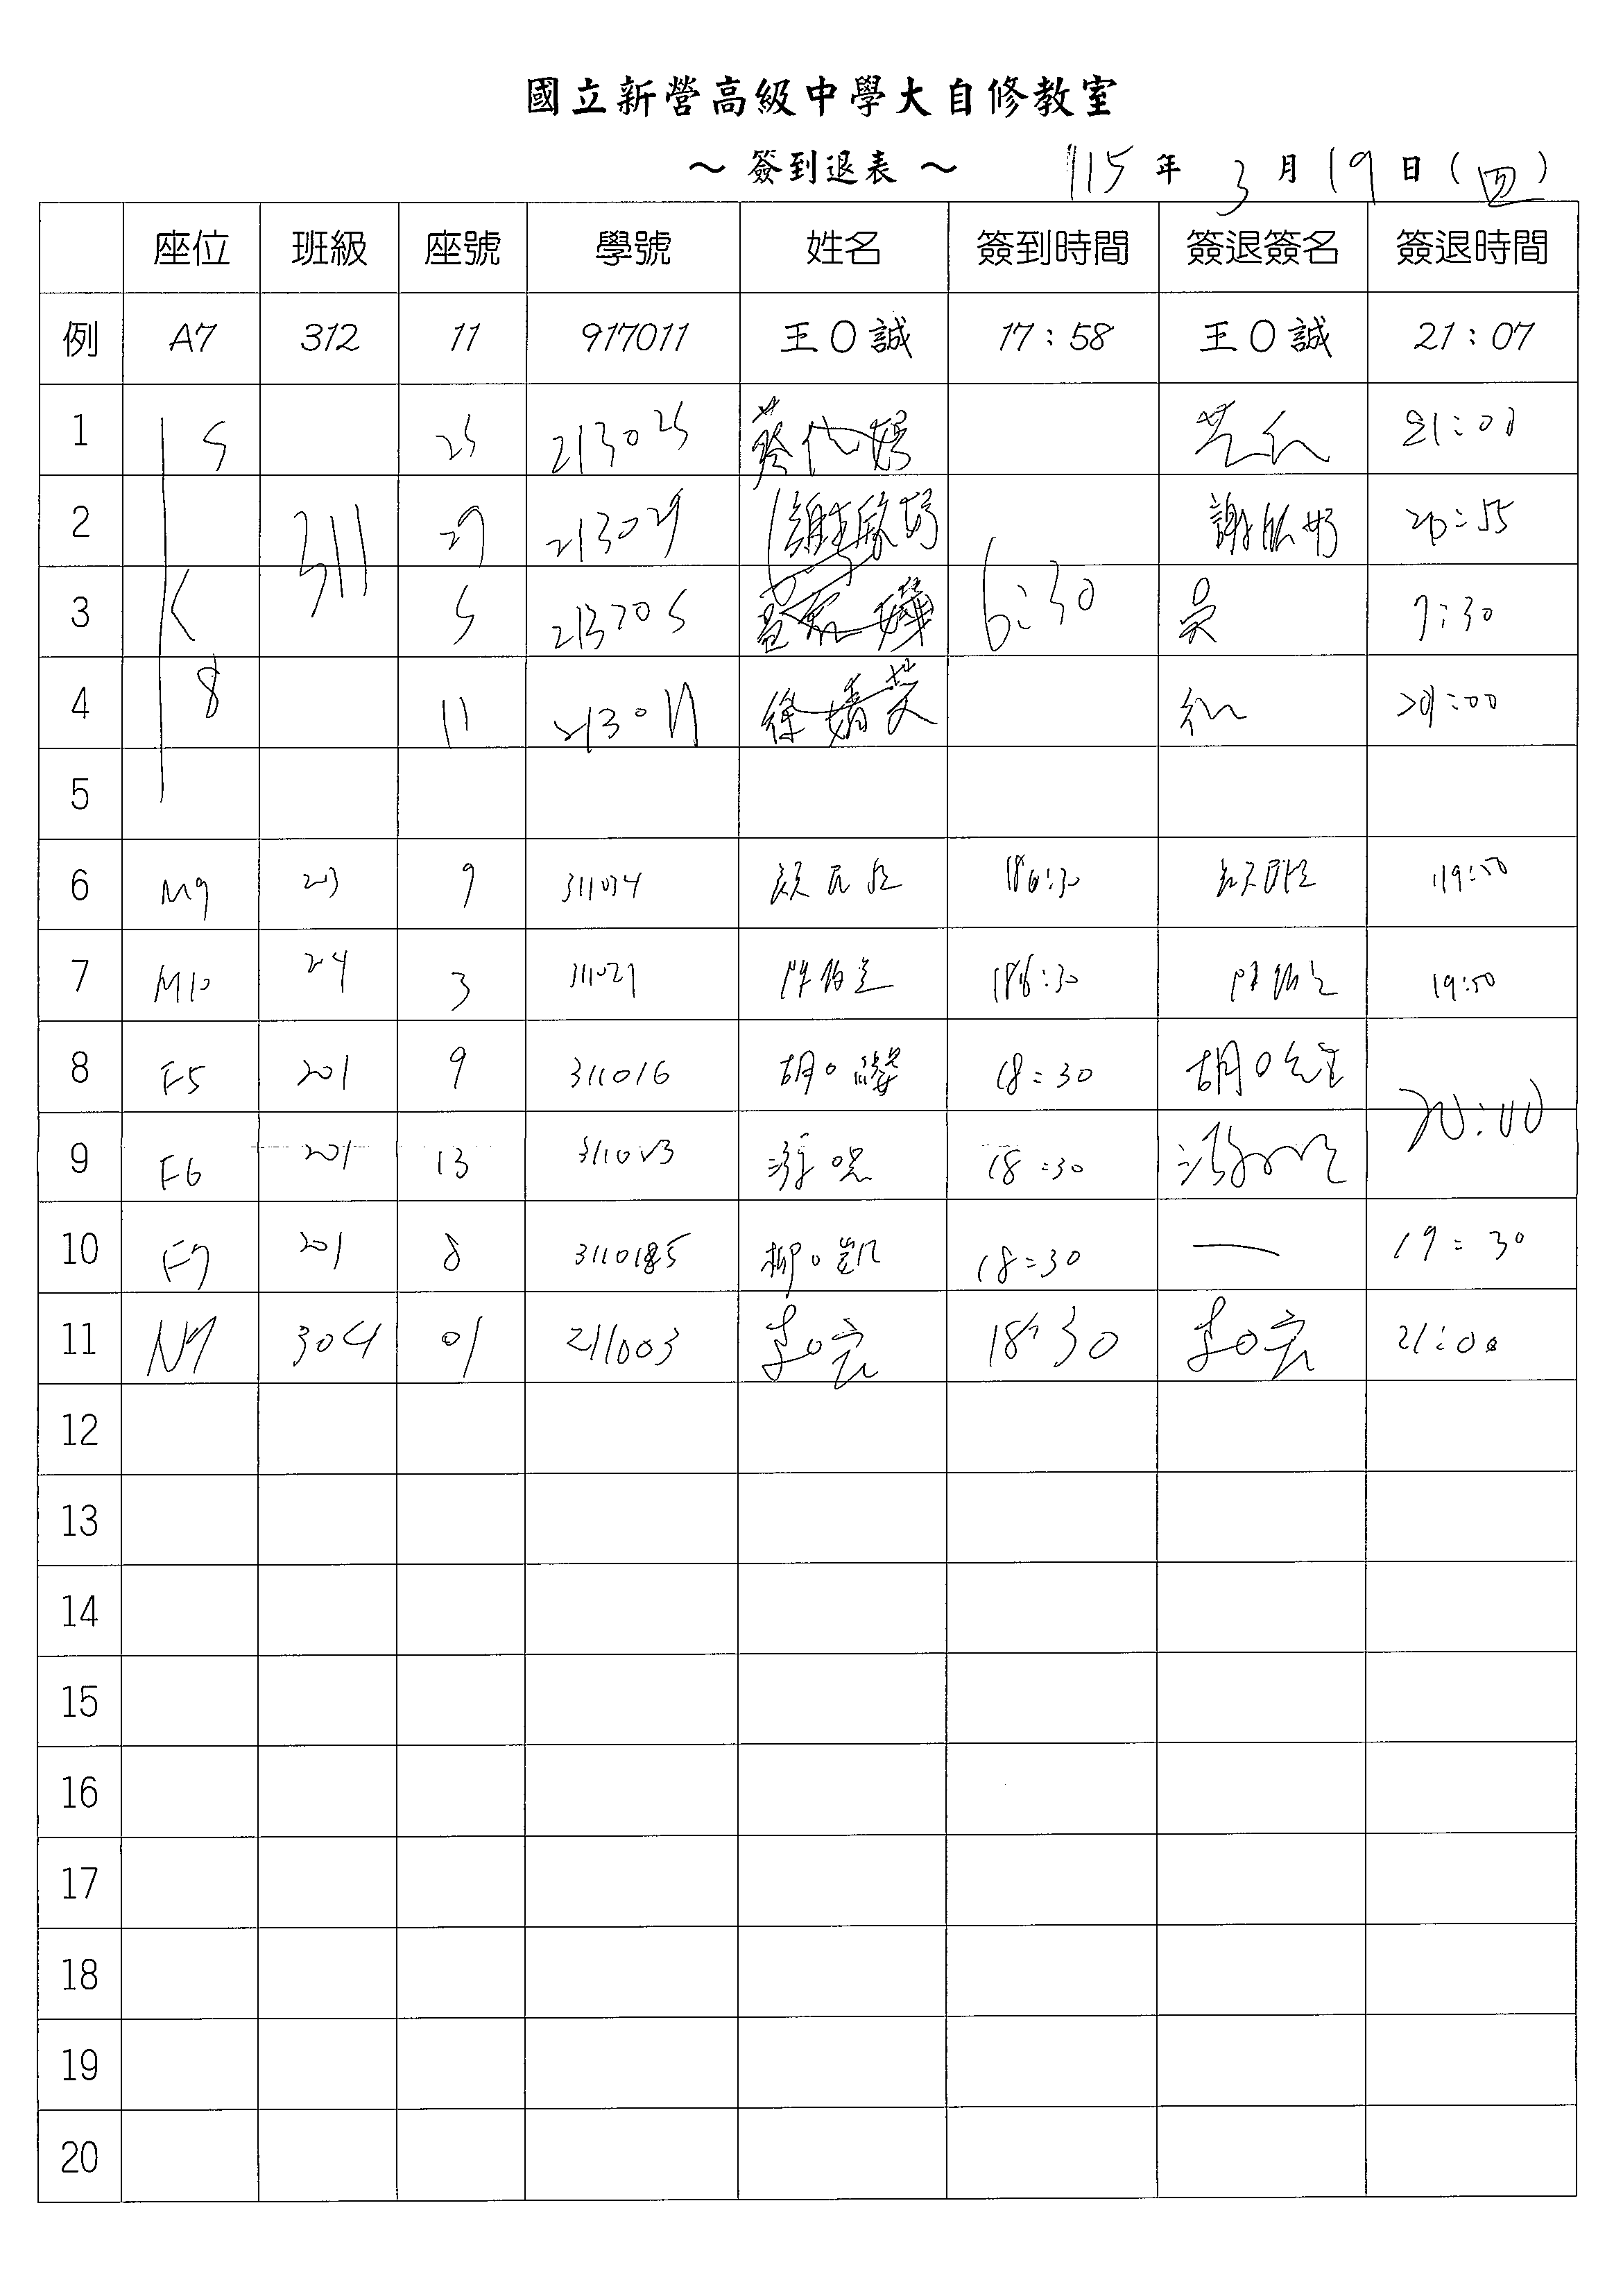 國立新營高級中學大自修教室
～ 簽到退表 ～ 115 年 3 月 19 日 (四)
座位 班級 座號 學號 姓名 簽到時間 簽退簽名 簽退時間
例 A7 312 11 917011 王O誠 17:58 王O誠 21:07
1 5 25 213025 21:00
2 311 29 213029 謝 20:55
3 K 5 6:30 吳 7:30
4 8 11 213011 徐婧芠
5
6 M9 203 9 19:50
7 M10 204 3 19:50
8 F5 201 9 311016 胡O 18:30 胡O 20:00
9 F6 201 13 18:30
10 F7 201 8 柳O凱 18:30 19:30
11 N9 304 01 211003 李O宏 18:30 李O宏 21:00
12
13
14
15
16
17
18
19
20